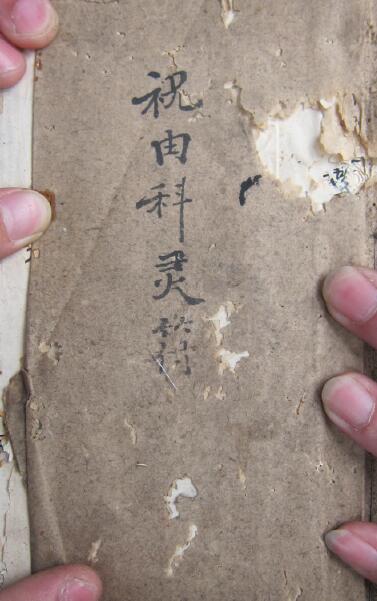 祝由科灵